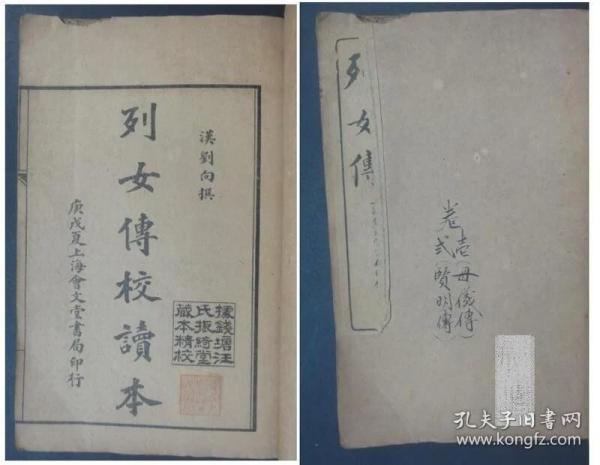 漢劉向撰
列女傳校讀本
庚戌夏上海會文堂書局印行
據錢塘汪
氏振綺堂
藏本精校
列女傳
卷壹（母儀傳）
弍（賢明傳）
孔夫子旧书网
www.kongfz.com